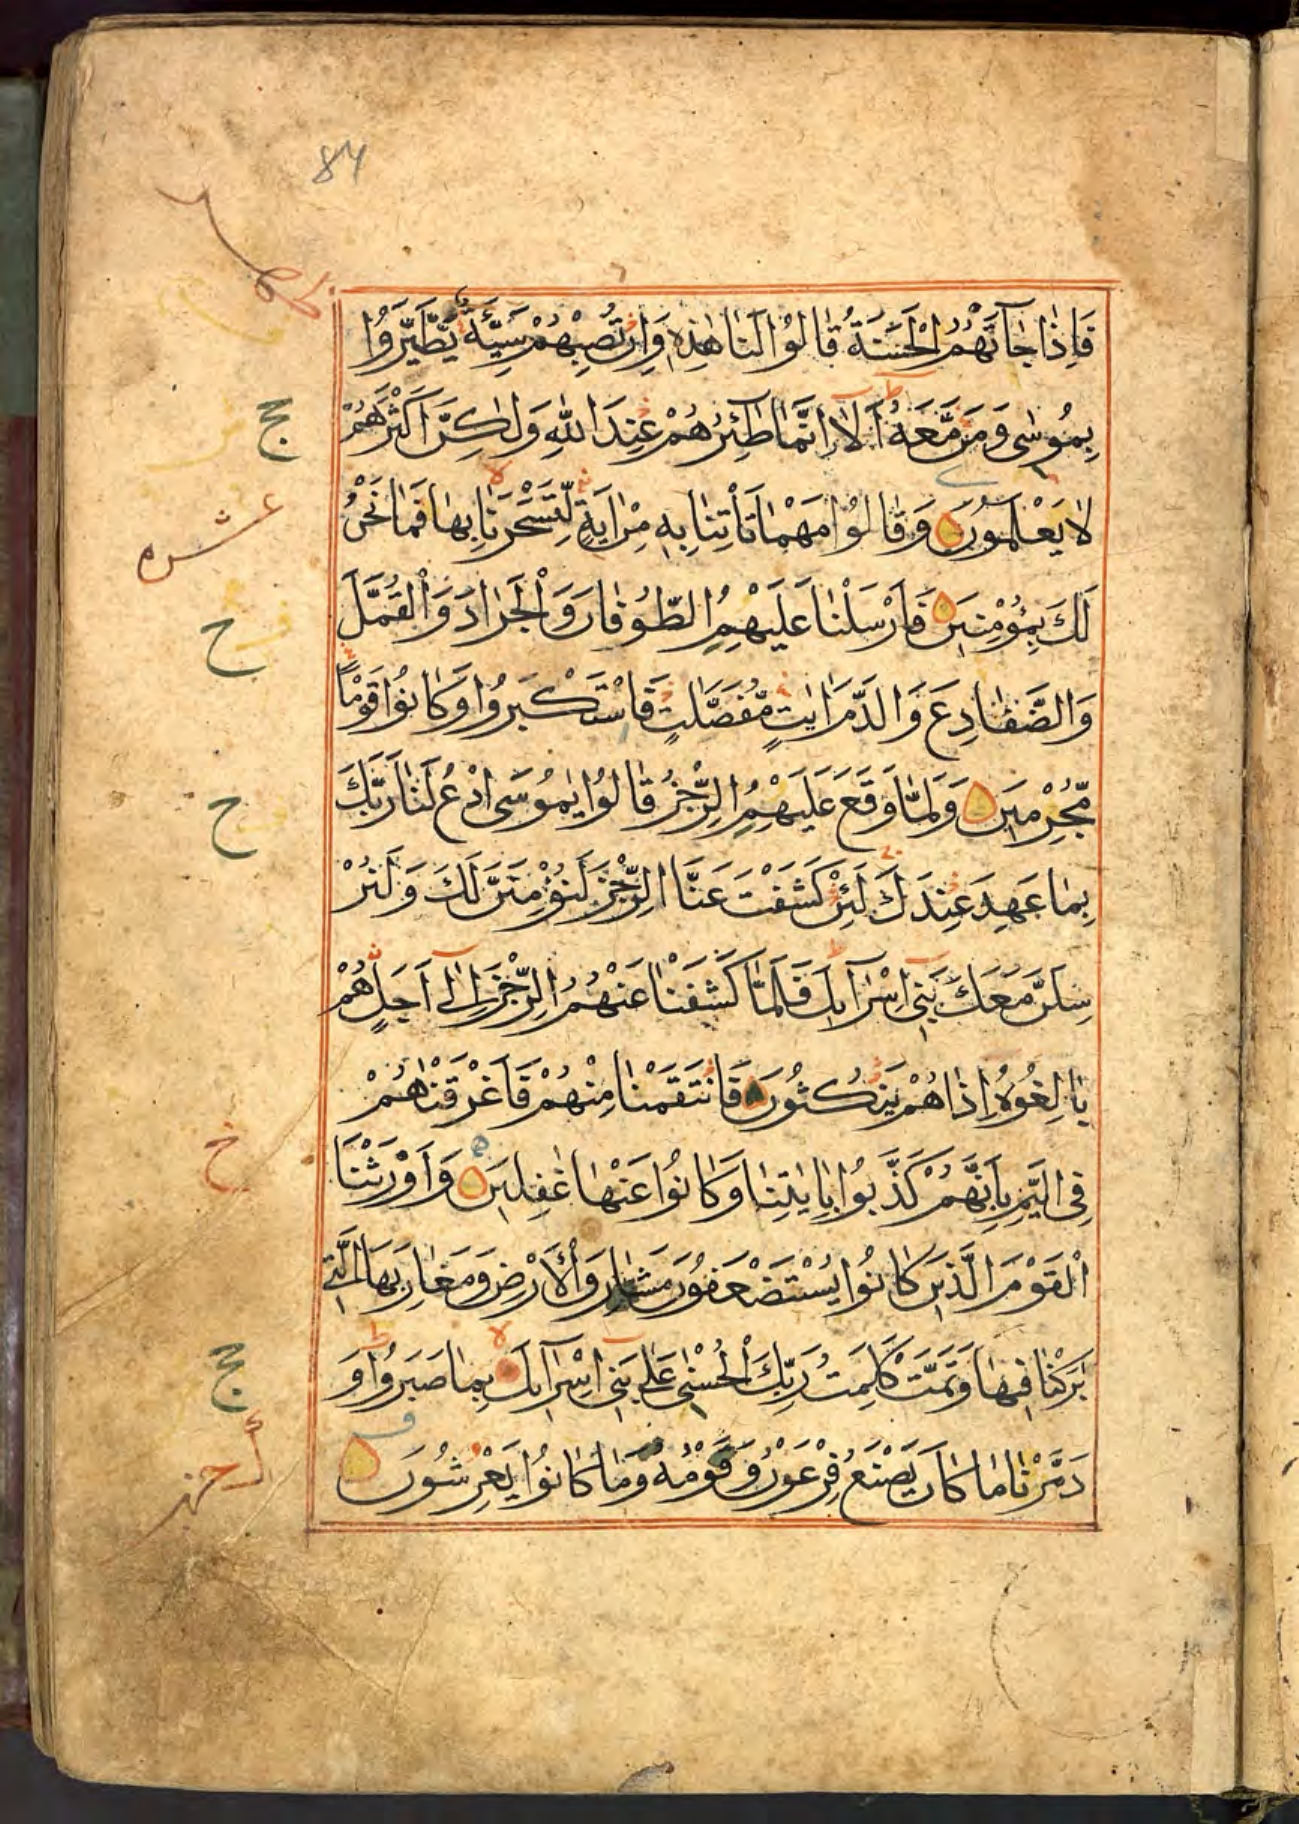 84
فَاِذَا جَآءَتْهُمُ الْحَسَنَةُ قَالُوْا لَنَا هٰذِهٖ وَاِنْ تُصِبْهُمْ سَيِّئَةٌ يَّطَّيَّرُوْا
بِمُوْسٰى وَمَنْ مَّعَهٗ اَلَآ اِنَّمَا طٰٓئِرُهُمْ عِنْدَ اللّٰهِ وَلٰكِنَّ اَكْثَرَهُمْ
لَا يَعْلَمُوْنَ وَقَالُوْا مَهْمَا تَاْتِنَا بِهٖ مِنْ اٰيَةٍ لِّتَسْحَرَنَا بِهَا فَمَا نَحْنُ
عشره
لَكَ بِمُؤْمِنِيْنَ فَاَرْسَلْنَا عَلَيْهِمُ الطُّوْفَانَ وَالْجَرَادَ وَالْقُمَّلَ
وَالضَّفَادِعَ وَالدَّمَ اٰيٰتٍ مُّفَصَّلٰتٍ فَاسْتَكْبَرُوْا وَكَانُوْا قَوْمًا
مُّجْرِمِيْنَ وَلَمَّا وَقَعَ عَلَيْهِمُ الرِّجْزُ قَالُوْا يٰمُوْسَى ادْعُ لَنَا رَبَّكَ
بِمَا عَهِدَ عِنْدَكَ لَئِنْ كَشَفْتَ عَنَّا الرِّجْزَ لَنُؤْمِنَنَّ لَكَ وَلَنُرْ
سِلَنَّ مَعَكَ بَنِيْٓ اِسْرَآءِيْلَ فَلَمَّا كَشَفْنَا عَنْهُمُ الرِّجْزَ اِلٰٓى اَجَلٍ هُمْ
بَالِغُوْهُ اِذَا هُمْ يَنْكُثُوْنَ فَانْتَقَمْنَا مِنْهُمْ فَاَغْرَقْنٰاهُمْ
فِى الْيَمِّ بِاَنَّهُمْ كَذَّبُوْا بِاٰيٰتِنَا وَكَانُوْا عَنْهَا غٰفِلِيْنَ وَاَوْرَثْنَا
الْقَوْمَ الَّذِيْنَ كَانُوْا يُسْتَضْعَفُوْنَ مَشَارِقَ الْاَرْضِ وَمَغَارِبَهَا الَّتِيْ
بٰرَكْنَا فِيْهَا وَتَمَّتْ كَلِمَتُ رَبِّكَ الْحُسْنٰى عَلٰى بَنِيْٓ اِسْرَآءِيْلَ بِمَا صَبَرُوْا وَ
دَمَّرْنَا مَا كَانَ يَصْنَعُ فِرْعَوْنُ وَقَوْمُهٗ وَمَا كَانُوْا يَعْرِشُوْنَ